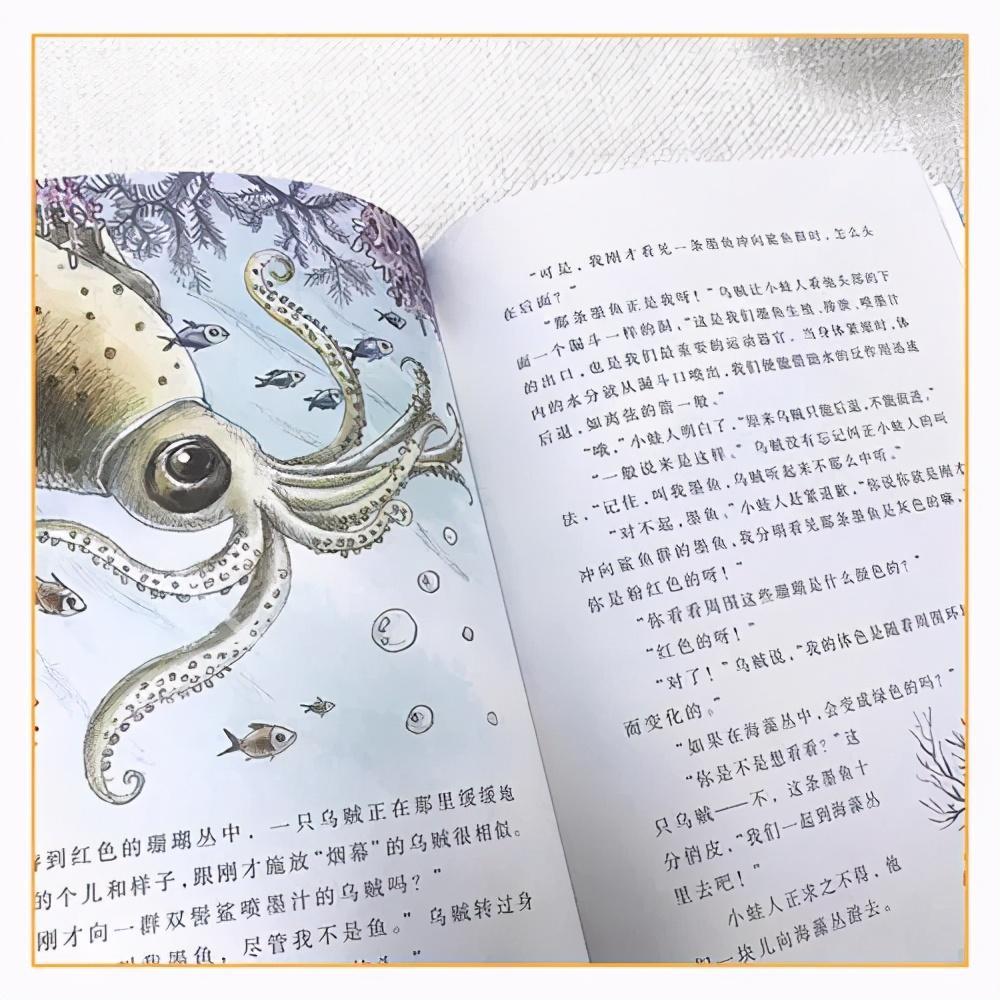 到红色的珊瑚丛中，一只乌贼正在那里缓缓地
的个儿和样子，跟刚才施放“烟幕”的乌贼很相似。
刚才向一群双髻鲨喷墨汁的乌贼吗？”
叫我墨鱼，尽管我不是鱼。”乌贼转过身
“可是，我刚才看见一条墨鱼冲向鲨鱼群时，怎么头
在后面？”
“那条墨鱼正是我呀！”乌贼让小蛙人看她头部的下
面一个漏斗一样的洞，“这是我们墨鱼生殖、排泄、喷墨汁
的出口，也是我们最重要的运动器官。当身体紧缩时，体
内的水分就从漏斗口喷出，我们便能借助水的反作用迅速
后退，如离弦的箭一般。”
“哦，”小蛙人明白了，“原来乌贼只能后退，不能前进，”
“一般说来是这样。”乌贼没有忘记纠正小蛙人的叫
法，“记住，叫我墨鱼，乌贼听起来不那么中听。”
“对不起，墨鱼。”小蛙人赶紧道歉，“你说你就是刚才
冲向鲨鱼群的墨鱼，我分明看见那条墨鱼是灰色的嘛，
你是粉红色的呀！”
“你看看周围这些珊瑚是什么颜色的？”
“红色的呀！”
“对了！”乌贼说，“我的体色是随着周围环境
而变化的。”
“如果在海藻丛中，会变成绿色的吗？”
“你是不是想看看？”这
只乌贼——不，这条墨鱼十
分俏皮，“我们一起到海藻丛
里去吧！”
小蛙人正求之不得，他
们一块儿向海藻丛游去。